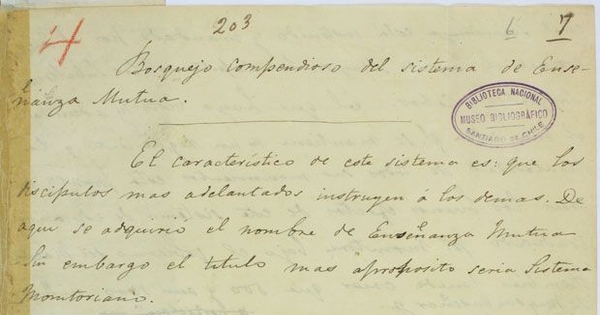 4
203
6 7
Bosquejo compendioso del sistema de Ense-
ñanza Mutua.
BIBLIOTECA NACIONAL
MUSEO BIBLIOGRÁFICO
SANTIAGO DE CHILE
El caracteristico de este sistema es: que los
discipulos mas adelantados instruyen á los demas. De
aqui se adquirio el nombre de Enseñanza Mutua
Sin embargo el titulo mas aproposito seria Sistema
Monitoriano.